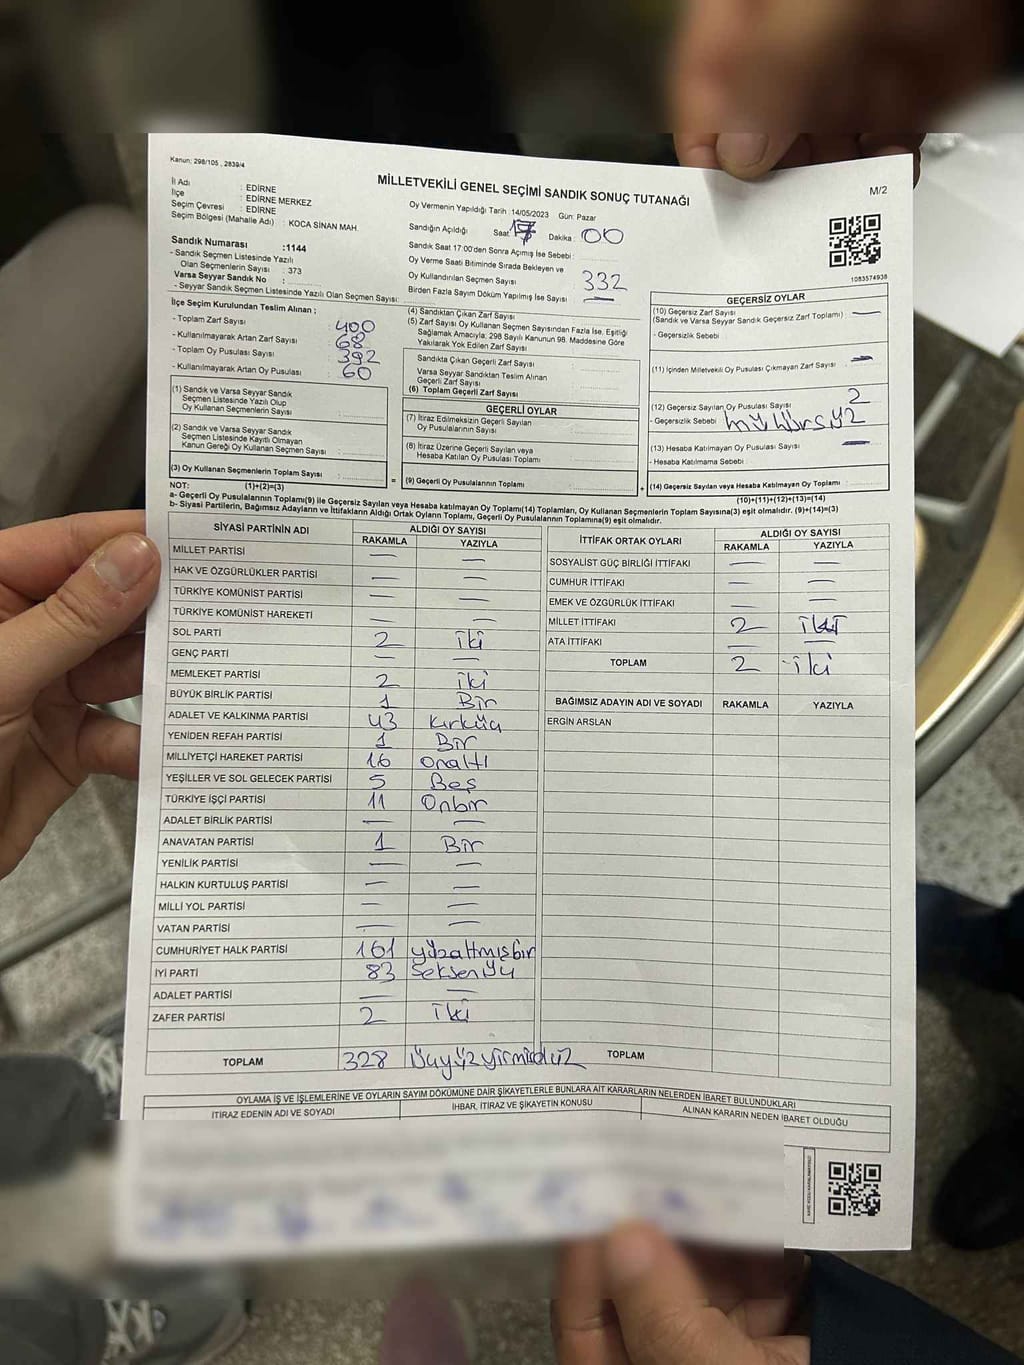 Kanun: 298/105 , 2839/4
MİLLETVEKİLİ GENEL SEÇİMİ SANDIK SONUÇ TUTANAĞI
M/2
İl Adı : EDİRNE
İlçe : EDİRNE MERKEZ
Seçim Çevresi : EDİRNE
Seçim Bölgesi (Mahalle Adı) : KOCA SİNAN MAH.
Sandık Numarası :1144
- Sandık Seçmen Listesinde Yazılı
Olan Seçmenlerin Sayısı : 373
Varsa Seyyar Sandık No :
- Seyyar Sandık Seçmen Listesinde Yazılı Olan Seçmen Sayısı:
Oy Vermenin Yapıldığı Tarih :14/05/2023 Gün: Pazar
Sandığın Açıldığı Saat: 17 Dakika : 00
Sandık Saat 17:00'den Sonra Açmış İse Sebebi :
Oy Verme Saati Bitiminde Sırada Bekleyen ve
Oy Kullandırılan Seçmen Sayısı : 332
Birden Fazla Sayım Döküm Yapılmış İse Sayısı : —
1083574938
İlçe Seçim Kurulundan Teslim Alınan ;
- Toplam Zarf Sayısı : 400
- Kullanılmayarak Artan Zarf Sayısı : 68
- Toplam Oy Pusulası Sayısı : 392
- Kullanılmayarak Artan Oy Pusulası : 60
(1) Sandık ve Varsa Seyyar Sandık
Seçmen Listesinde Yazılı Olup
Oy Kullanan Seçmenlerin Sayısı :
(2) Sandık ve Varsa Seyyar Sandık
Seçmen Listesinde Kayıtlı Olmayan
Kanun Gereği Oy Kullanan Seçmen Sayısı :
(3) Oy Kullanan Seçmenlerin Toplam Sayısı :
(4) Sandıktan Çıkan Zarf Sayısı :
(5) Zarf Sayısı Oy Kullanan Seçmen Sayısından Fazla İse, Eşitliği
Sağlamak Amacıyla; 298 Sayılı Kanunun 98. Maddesine Göre
Yakılarak Yok Edilen Zarf Sayısı :
Sandıkta Çıkan Geçerli Zarf Sayısı :
Varsa Seyyar Sandıktan Teslim Alınan
Geçerli Zarf Sayısı :
(6) Toplam Geçerli Zarf Sayısı :
GEÇERLİ OYLAR
(7) İtiraz Edilmeksizin Geçerli Sayılan
Oy Pusulalarının Sayısı :
(8) İtiraz Üzerine Geçerli Sayılan veya
Hesaba Katılan Oy Pusulası Toplamı :
= (9) Geçerli Oy Pusulalarının Toplamı :
GEÇERSİZ OYLAR
(10) Geçersiz Zarf Sayısı
(Sandık ve Varsa Seyyar Sandık Geçersiz Zarf Toplamı) : —
- Geçersizlik Sebebi :
(11) İçinden Milletvekili Oy Pusulası Çıkmayan Zarf Sayısı : —
(12) Geçersiz Sayılan Oy Pusulası Sayısı : 2
- Geçersizlik Sebebi : mühürsüz
(13) Hesaba Katılmayan Oy Pusulası Sayısı : —
- Hesaba Katılmama Sebebi :
+ (14) Geçersiz Sayılan veya Hesaba Katılmayan Oy Toplamı :
NOT: (1)+(2)=(3)
(10)+(11)+(12)+(13)=(14)
a- Geçerli Oy Pusulalarının Toplamı(9) ile Geçersiz Sayılan veya Hesaba katılmayan Oy Toplamı(14) Toplamları, Oy Kullanan Seçmenlerin Toplam Sayısına(3) eşit olmalıdır. (9)+(14)=(3)
b- Siyasi Partilerin, Bağımsız Adayların ve İttifakların Aldığı Ortak Oyların Toplamı, Geçerli Oy Pusulalarının Toplamına(9) eşit olmalıdır.
SİYASİ PARTİNİN ADI ALDIĞI OY SAYISI
RAKAMLA YAZIYLA
MİLLET PARTİSİ — —
HAK VE ÖZGÜRLÜKLER PARTİSİ — —
TÜRKİYE KOMÜNİST PARTİSİ — —
TÜRKİYE KOMÜNİST HAREKETİ — —
SOL PARTİ 2 iki
GENÇ PARTİ — —
MEMLEKET PARTİSİ 2 iki
BÜYÜK BİRLİK PARTİSİ 1 Bir
ADALET VE KALKINMA PARTİSİ 43 kırküç
YENİDEN REFAH PARTİSİ 1 Bir
MİLLİYETÇİ HAREKET PARTİSİ 16 onaltı
YEŞİLLER VE SOL GELECEK PARTİSİ 5 Beş
TÜRKİYE İŞÇİ PARTİSİ 11 Onbir
ADALET BİRLİK PARTİSİ — —
ANAVATAN PARTİSİ 1 Bir
YENİLİK PARTİSİ — —
HALKIN KURTULUŞ PARTİSİ — —
MİLLİ YOL PARTİSİ — —
VATAN PARTİSİ — —
CUMHURİYET HALK PARTİSİ 161 yüzaltmışbir
İYİ PARTİ 83 Seksenüç
ADALET PARTİSİ — —
ZAFER PARTİSİ 2 iki
TOPLAM 328 üçyüzyirmisekiz
İTTİFAK ORTAK OYLARI ALDIĞI OY SAYISI
RAKAMLA YAZIYLA
SOSYALİST GÜÇ BİRLİĞİ İTTİFAKI — —
CUMHUR İTTİFAKI — —
EMEK VE ÖZGÜRLÜK İTTİFAKI — —
MİLLET İTTİFAKI 2 iki
ATA İTTİFAKI — —
TOPLAM 2 iki
BAĞIMSIZ ADAYIN ADI VE SOYADI RAKAMLA YAZIYLA
ERGİN ARSLAN
TOPLAM
OYLAMA İŞ VE İŞLEMLERİNE VE OYLARIN SAYIM DÖKÜMÜNE DAİR ŞİKAYETLERLE BUNLARA AİT KARARLARIN NELERDEN İBARET BULUNDUKLARI
İTİRAZ EDENİN ADI VE SOYADI İHBAR, İTİRAZ VE ŞİKAYETİN KONUSU ALINAN KARARIN NEDEN İBARET OLDUĞU